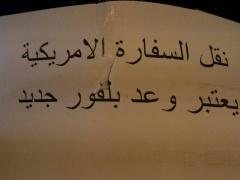 نقل السفارة الامريكية
يعتبر وعد بلفور جديد